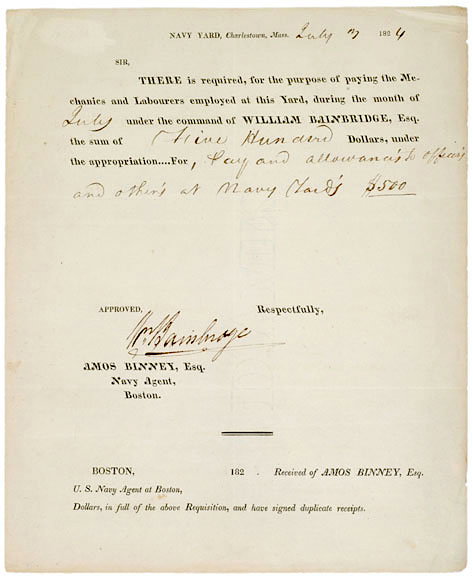 NAVY YARD, Charlestown, Mass. July 3 1824
SIR,
THERE is required, for the purpose of paying the Me-
chanics and Labourers employed at this Yard, during the month of
July under the command of WILLIAM BAINBRIDGE, Esq.
the sum of Five Hundred Dollars, under
the appropriation....For, Pay and allowances to officers
and others at Navy Yards $500
APPROVED, Respectfully,
Wm Bainbridge
AMOS BINNEY, Esq.
Navy Agent,
Boston.
BOSTON, 182 . Received of AMOS BINNEY, Esq.
U. S. Navy Agent at Boston,
Dollars, in full of the above Requisition, and have signed duplicate receipts.